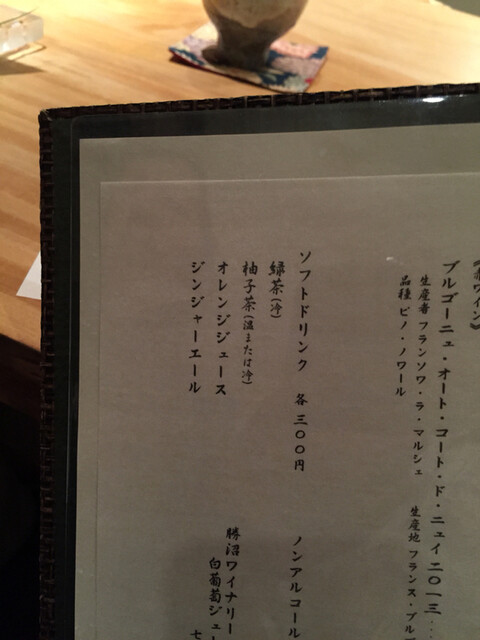 《赤ワイン》
ブルゴーニュ・オート・コート・ド・ニュイ二〇一三
生産者 フランソワ・ラ・マルシェ 生産地 フランス・ブル
品種 ピノ・ノワール
ソフトドリンク 各 三〇〇円
緑茶(冷)
柚子茶(温または冷)
オレンジジュース
ジンジャーエール
ノンアルコール
勝沼ワイナリー
白葡萄ジュー
七